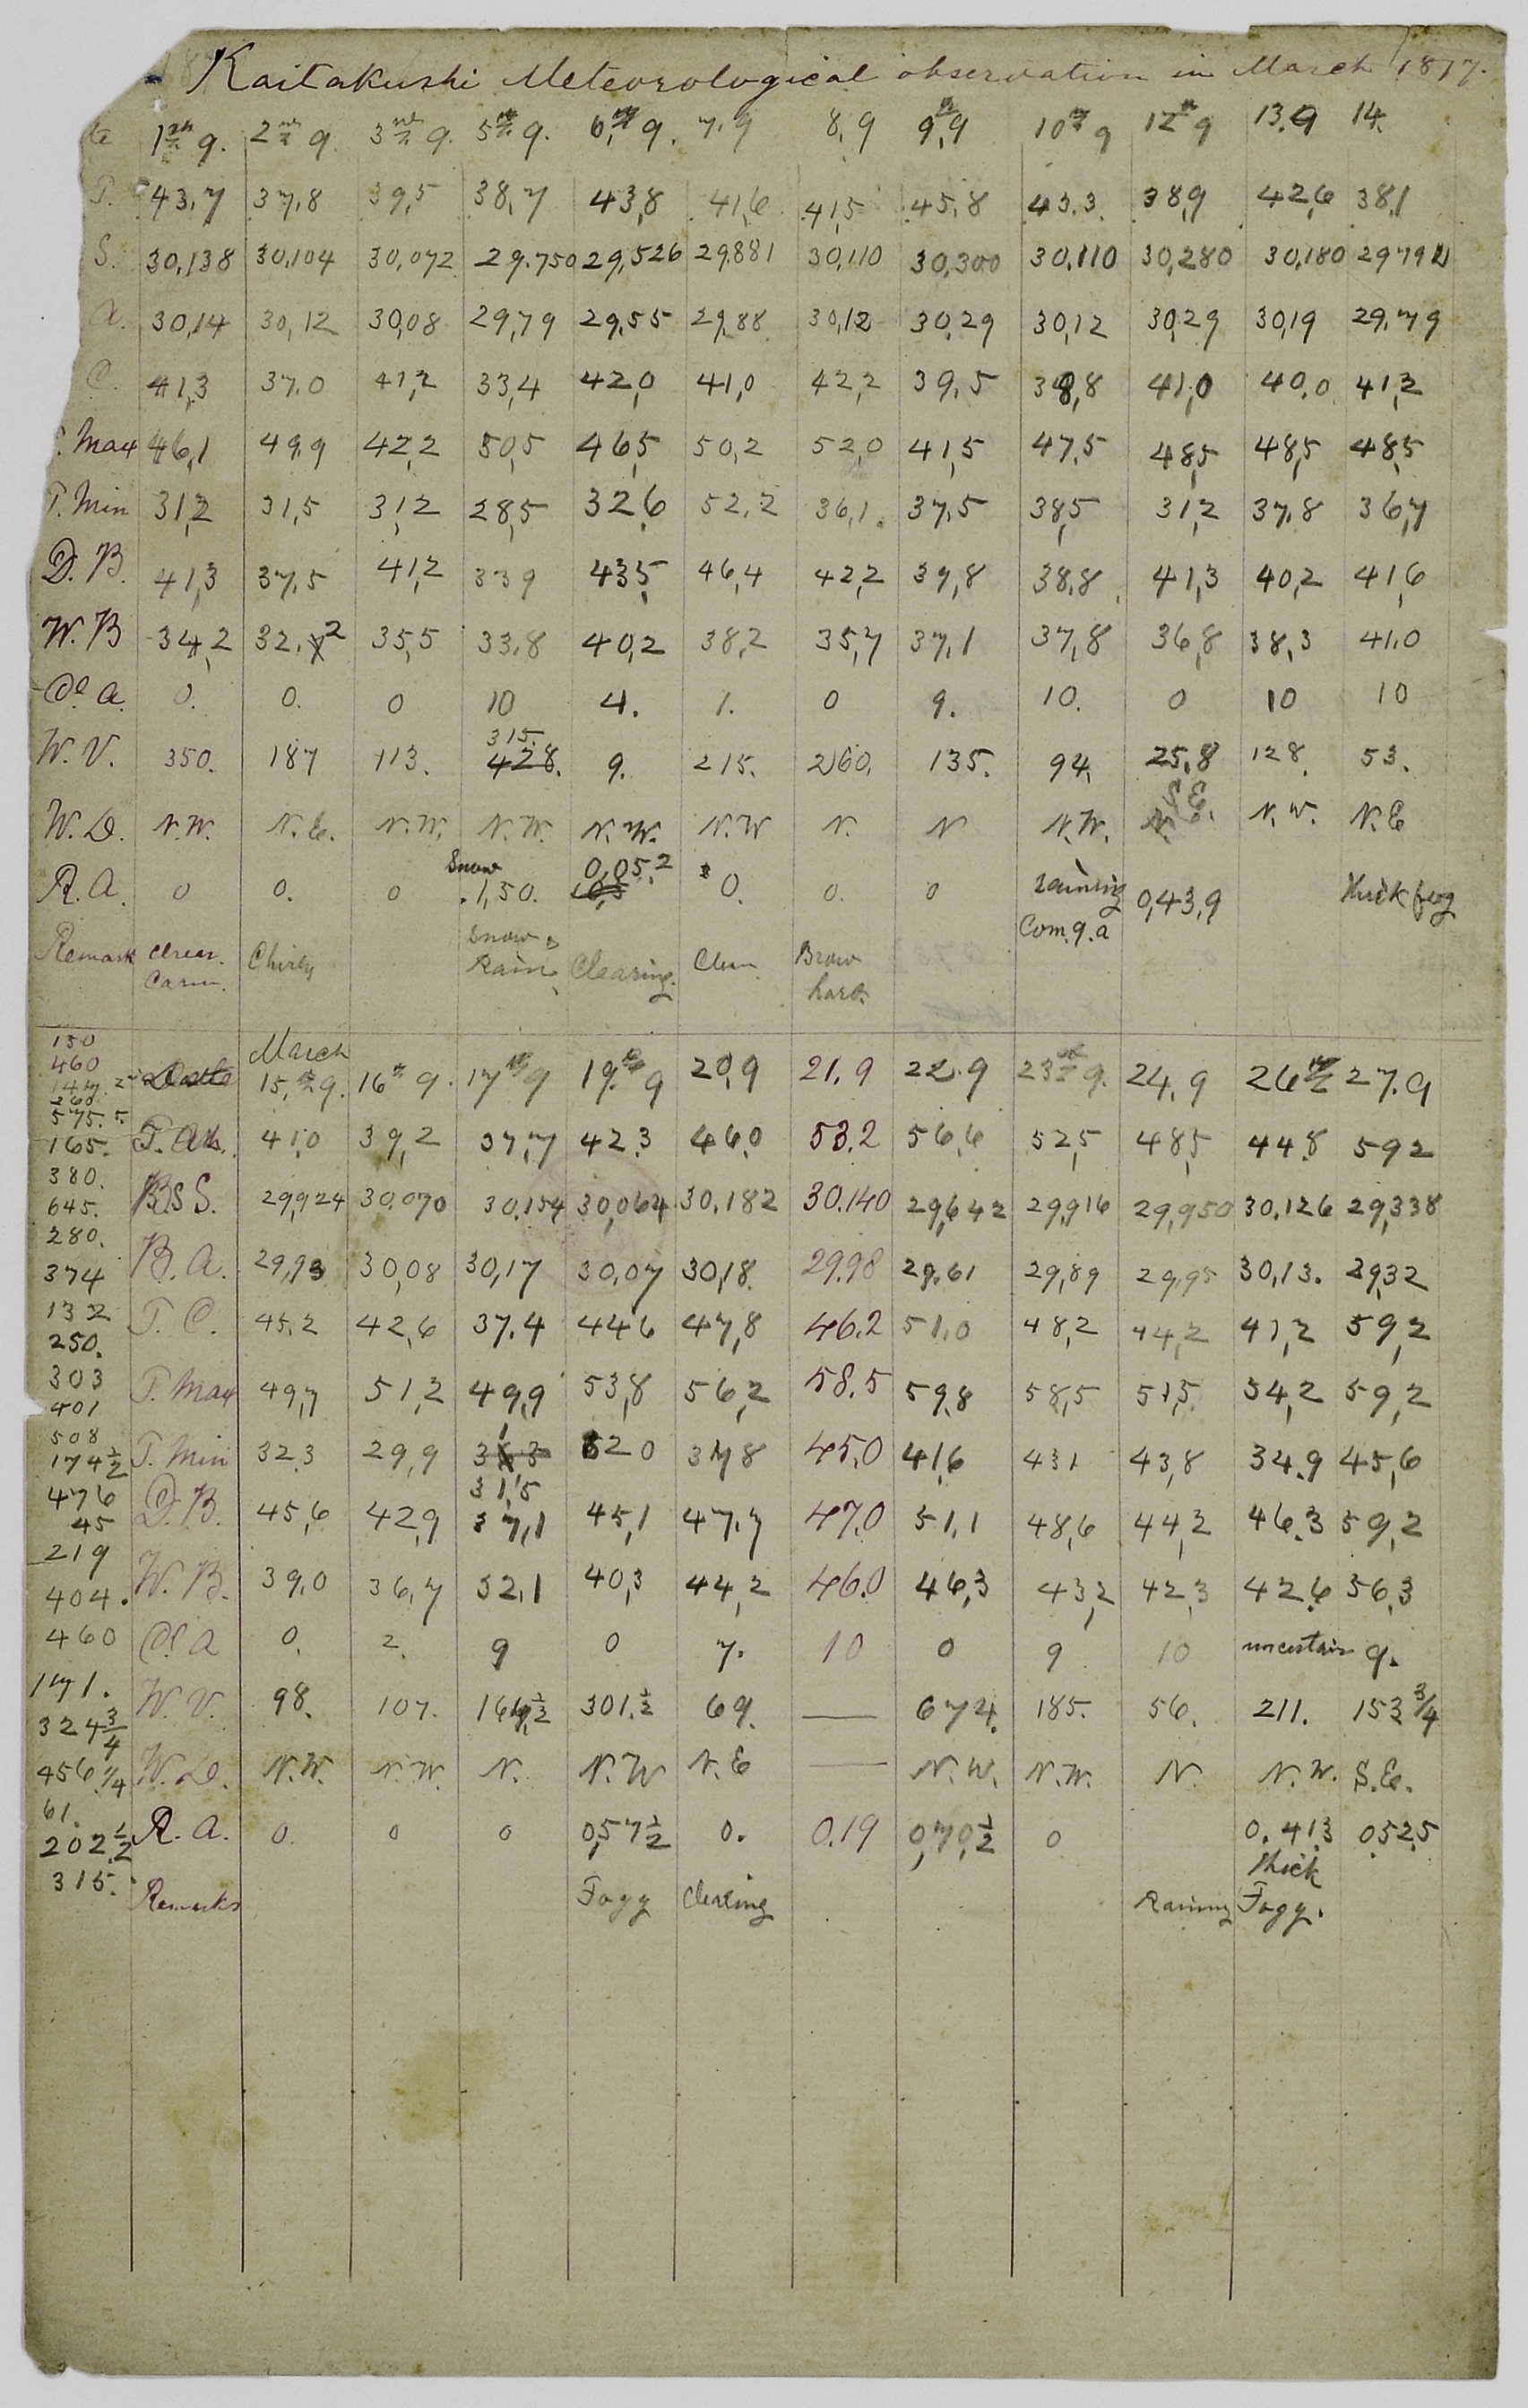 Kaitakushi Meteorological observation in March 1877.
te 1st 9. 2nd 9 3rd 9. 5th 9. 6th 9. 7.9 8,9 9th,9 10th 9 12th 9 13.9 14.
T. 43,7 37,8 39,5 38,7 43,8 41,6 41,5 45,8 43.3. 38,9 42,6 38,1
S. 30,138 30,104 30,072 29.750 29,526 29,881 30,110 30,300 30.110 30,280 30,180 29792
A. 30,14 30,12 30,08 29,79 29,55 29,88 30,12 30,29 30,12 30,29 30,19 29,79
C. 41,3 37.0 41,2 33,4 42,0 41,0 42,2 39,5 38,8 41,0 40,0 41,2
T. Max 46,1 49,9 42,2 50,5 46,5 50,2 52,0 41,5 47,5 48,5 48,5 48,5
T. Min 31,2 31,5 31,2 28,5 32,6 52,2 36,1. 37,5 38,5 31,2 37,8 36,7
D. B. 41,3 37,5 41,2 339 43,5 46,4 42,2 39,8 38,8 41,3 40,2 41,6
W. B 34,2 32.2 35,5 33,8 40,2 38,2 35,7 37,1 37,8 36,8 38,3 41.0
Cl a. 0. 0. 0 10 4. 1. 0 9. 10. 0 10 10
315.
W. V. 350. 187 113. 428. 9. 215. 260. 135. 94. 25,8 128. 53.
S.E.
W. D. N.W. N.E. N.W. N.W. N.W. N.W N. N N.W. N. N.W. N.E
Snow 0,05.2
R. A. 0 0. 0 .1,50. 0. 0. 0 raining 0,43,9 thick fog
Com. 9. a
Remark Clear. Chirly Snow & Clearing. Clear Brow
Carm. Rain hard.
150
460 March
147. Date 15,th 9. 16th 9. 17th 9 19.th 9 20,9 21.9 22.9 23rd 9. 24.9 26th 27.9
260
575.5.
165. T. Ath. 41,0 39,2 37,7 42.3 46,0 53.2 56,6 52,5 48,5 44.8 592
380.
645. B S S. 29,924 30,070 30,154 30,064 30,182 30.140 29,642 29,916 29,950 30.126 29,338
280.
374 B. A. 29,93 30,08 30,17 30,07 30,18. 29.98 29,61 29,89 29,95 30,13. 29,32
132 T. C. 45,2 42,6 37.4 446 47,8 46.2 51,0 48,2 44,2 41,2 59,2
250.
303 T. Max 49,7 51,2 49,9 53,8 56,2 58.5 59,8 58,5 51,5 54,2 59,2
401
508
174½ T. Min 32.3 29,9 520 378 45,0 41,6 431 43,8 34.9 45,6
476 31,5
45 D. B. 45,6 42,9 37,1 45,1 47,7 47,0 51,1 48,6 44,2 46.3 59,2
219
404. W. B. 39,0 36,7 32,1 40,3 44,2 46.0 46,3 43,2 42,3 42.6 56,3
460 Cl. a 0. 2. 9 0 7. 10 0 9 10 uncertain 9.
171. W. V. 98. 107. 301.½ 69. — 674. 185. 56. 211. 153¾
324¾
456¼ W. D. N.W. N.W. N. N.W N.E — N.W. N.W. N. N.W. S.E.
61.
202½ R. A. 0. 0 0 0,57½ 0. 0.19 0,70,½ 0 0.413 0,525
315. thick
Remarks Fogy Clearing Raining Fogy.